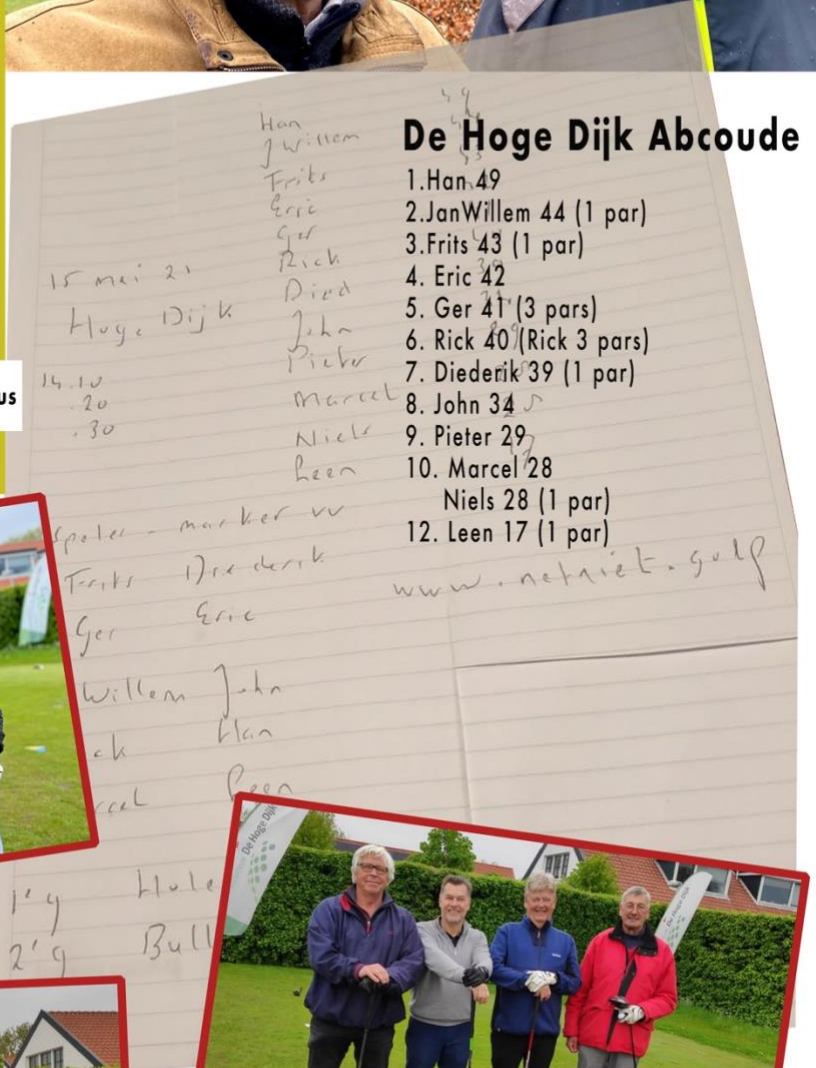 De Hoge Dijk Abcoude
1.Han 49
2.JanWillem 44 (1 par)
3.Frits 43 (1 par)
4. Eric 42
5. Ger 41 (3 pars)
6. Rick 40 (Rick 3 pars)
7. Diederik 39 (1 par)
8. John 34
9. Pieter 29
10. Marcel 28
Niels 28 (1 par)
12. Leen 17 (1 par)
us
Han
J Willem
Frits
Eric
Ger
Rick
Died
John
Pieter
Marcel
Niels
Leen
49
15 mei 21
Hoge Dijk
14.10
.20
.30
speler - marker vv
Frits Diederik
Ger Eric
Willem John
ck Han
rcel Leen
www.netniet.golf
1e 9 Hole
2e 9 Bull
De Hoge Dijk
De Hoge Dijk